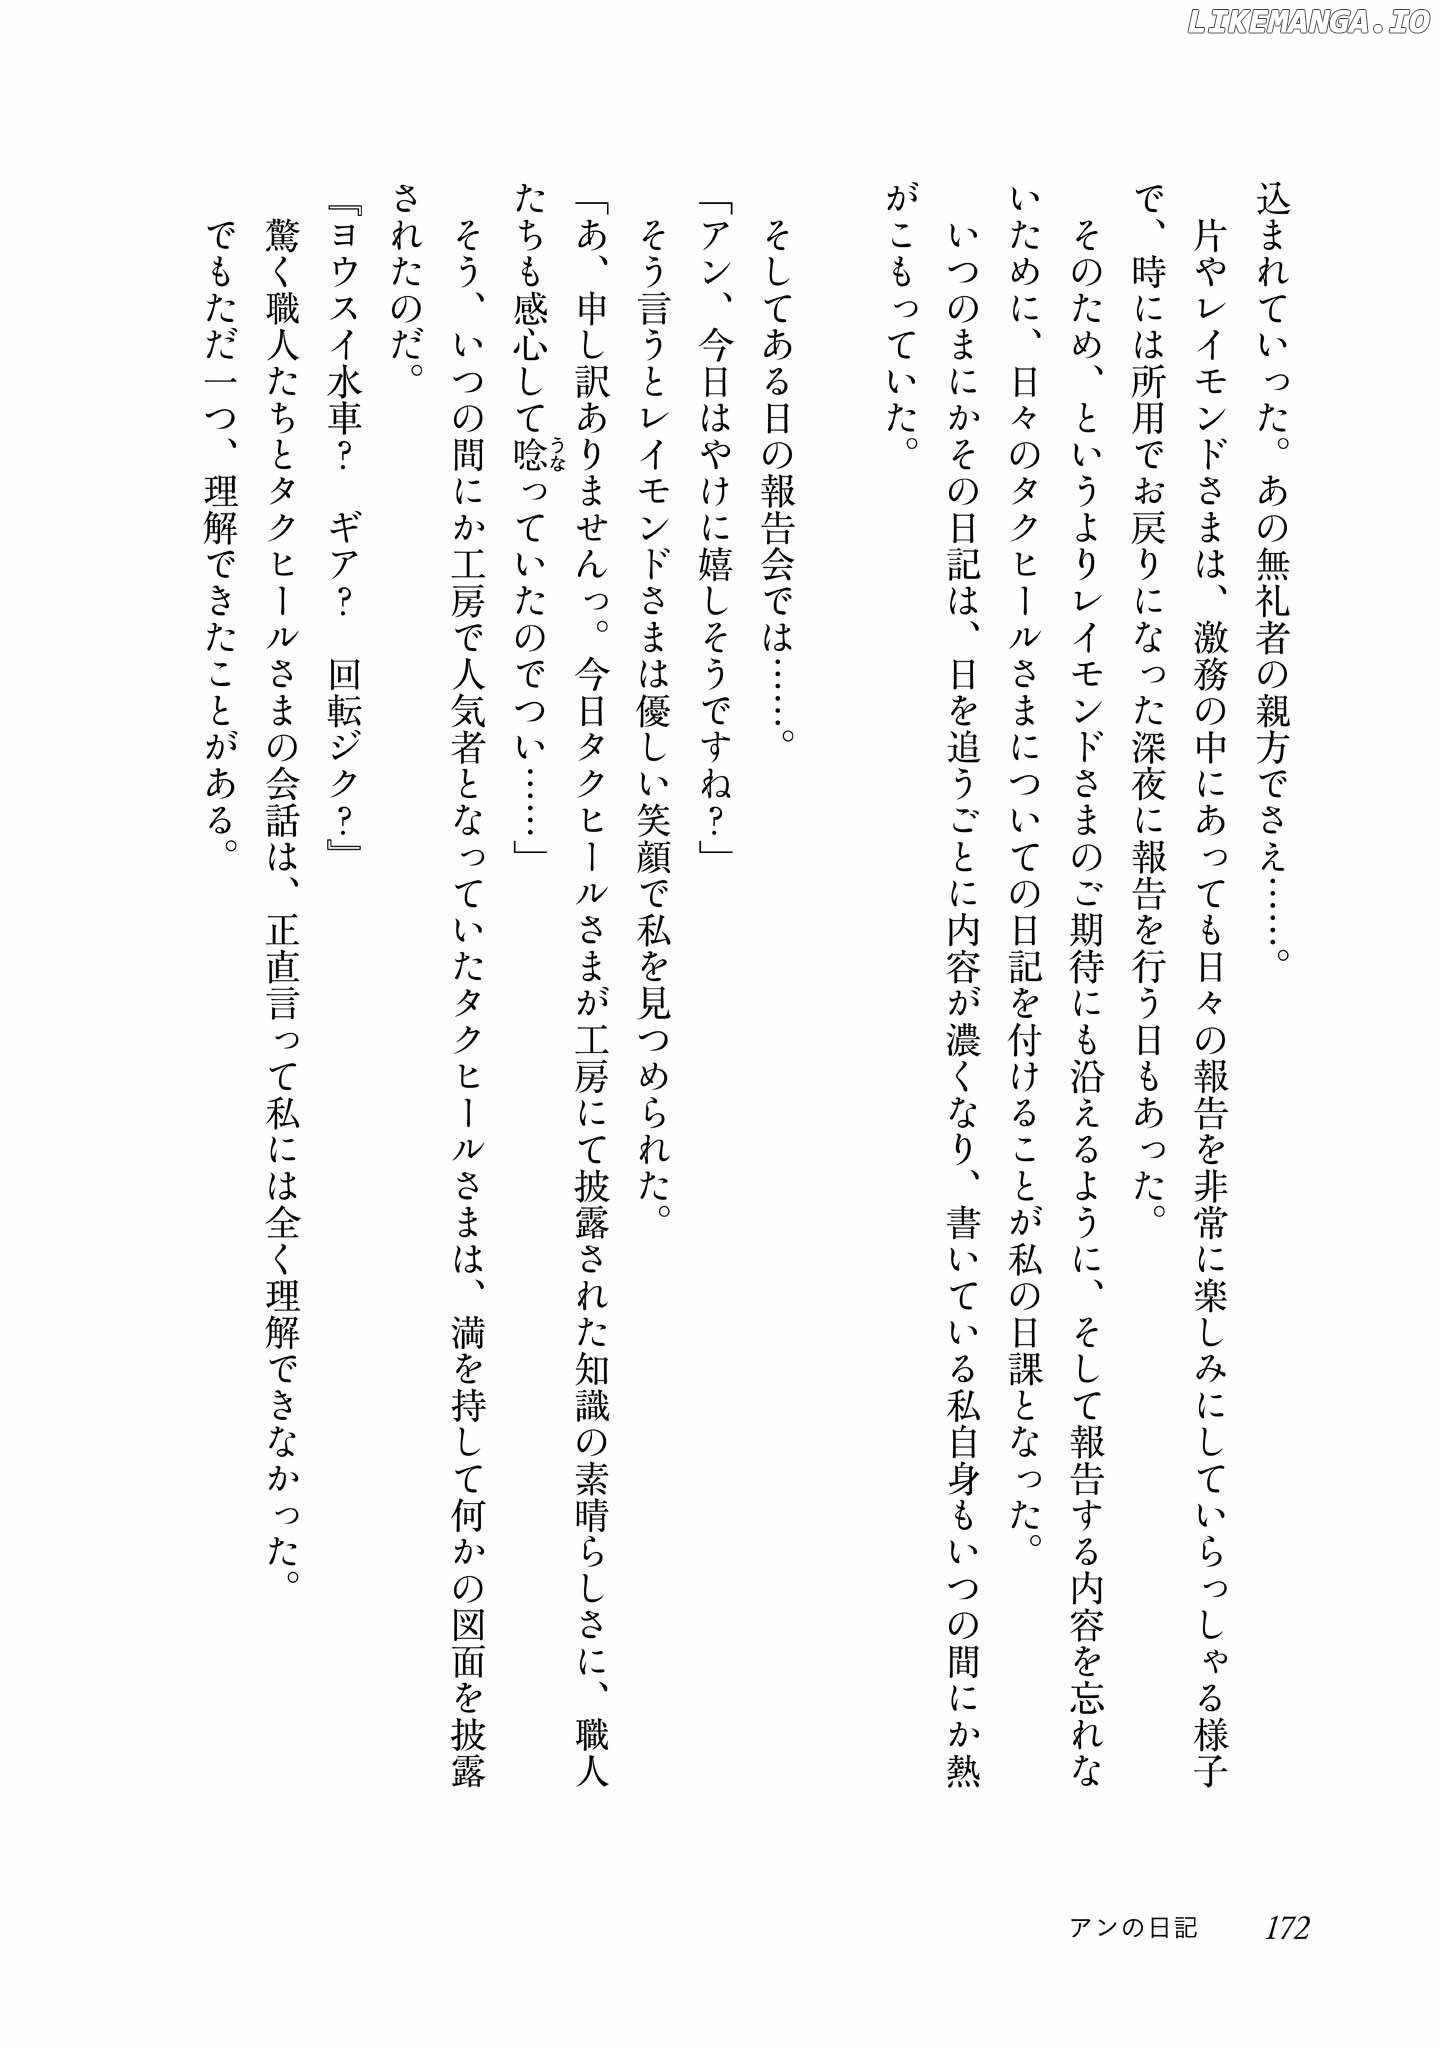 LIKEMANGA.IO
込まれていった。あの無礼者の親方でさえ……。
片やレイモンドさまは、激務の中にあっても日々の報告を非常に楽しみにしていらっしゃる様子
で、時には所用でお戻りになった深夜に報告を行う日もあった。
そのため、というよりレイモンドさまのご期待にも沿えるように、そして報告する内容を忘れな
いために、日々のタクヒールさまについての日記を付けることが私の日課となった。
いつのまにかその日記は、日を追うごとに内容が濃くなり、書いている私自身もいつの間にか熱
がこもっていた。
そしてある日の報告会では……。
「アン、今日はやけに嬉しそうですね？」
そう言うとレイモンドさまは優しい笑顔で私を見つめられた。
「あ、申し訳ありませんっ。今日タクヒールさまが工房にて披露された知識の素晴らしさに、職人
たちも感心して唸っていたのでつい……」
うな
そう、いつの間にか工房で人気者となっていたタクヒールさまは、満を持して何かの図面を披露
されたのだ。
『ヨウスイ水車？　ギア？　回転ジク？』
驚く職人たちとタクヒールさまの会話は、正直言って私には全く理解できなかった。
でもただ一つ、理解できたことがある。
アンの日記
172